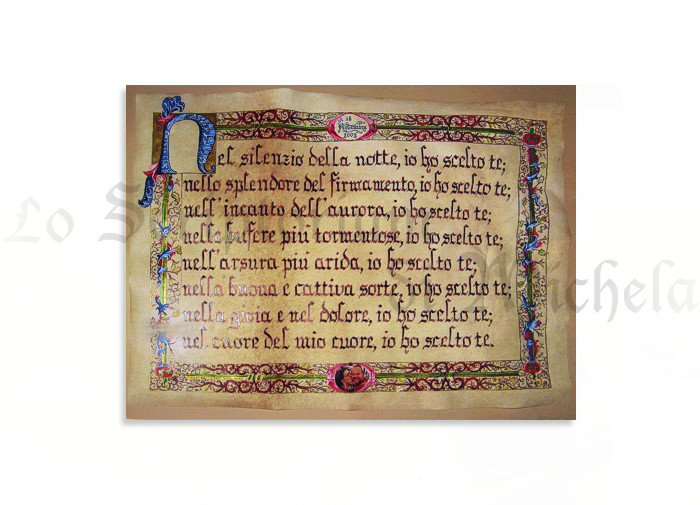 18
2005
Nel silenzio della notte, io ho scelto te;
nello splendore del firmamento, io ho scelto te;
nell'incanto dell'aurora, io ho scelto te;
nelle bufere più tormentose, io ho scelto te;
nell'arsura più arida, io ho scelto te;
nella buona e cattiva sorte, io ho scelto te;
nella gioia e nel dolore, io ho scelto te;
nel cuore del mio cuore, io ho scelto te.
Lo
Michela